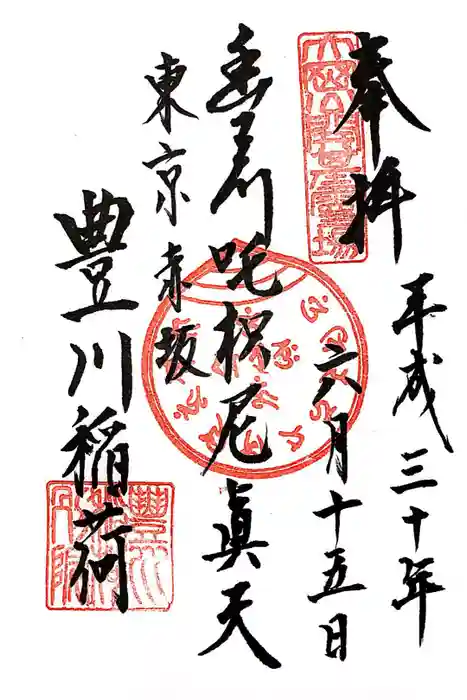 奉拝
平成三十年
六月十五日
豊川吒枳尼眞天
東京赤坂
豊川稲荷